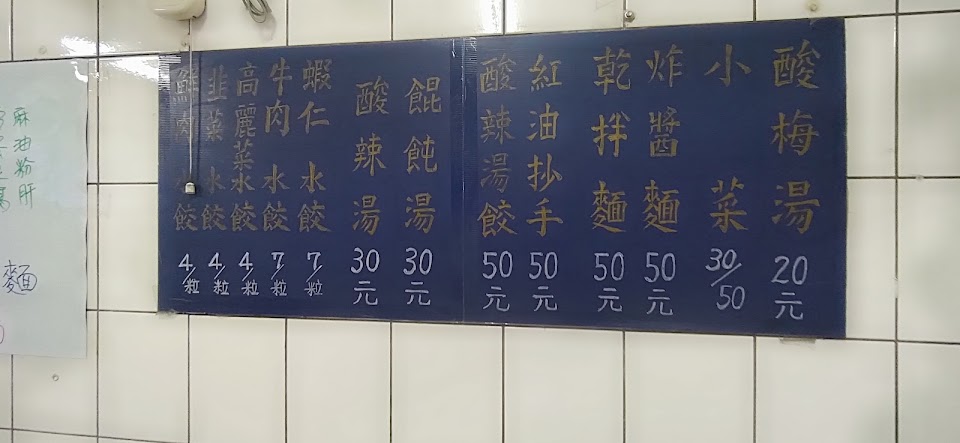 酸梅湯 20元
小菜 30/50
炸醬麵 50元
乾拌麵 50元
紅油抄手 50元
酸辣湯餃 50元
餛飩湯 30元
酸辣湯 30元
蝦仁水餃 7/粒
牛肉水餃 7/粒
高麗菜水餃 4/粒
韭菜水餃 4/粒
鮮肉水餃 4/粒
麻油粉肝
麵